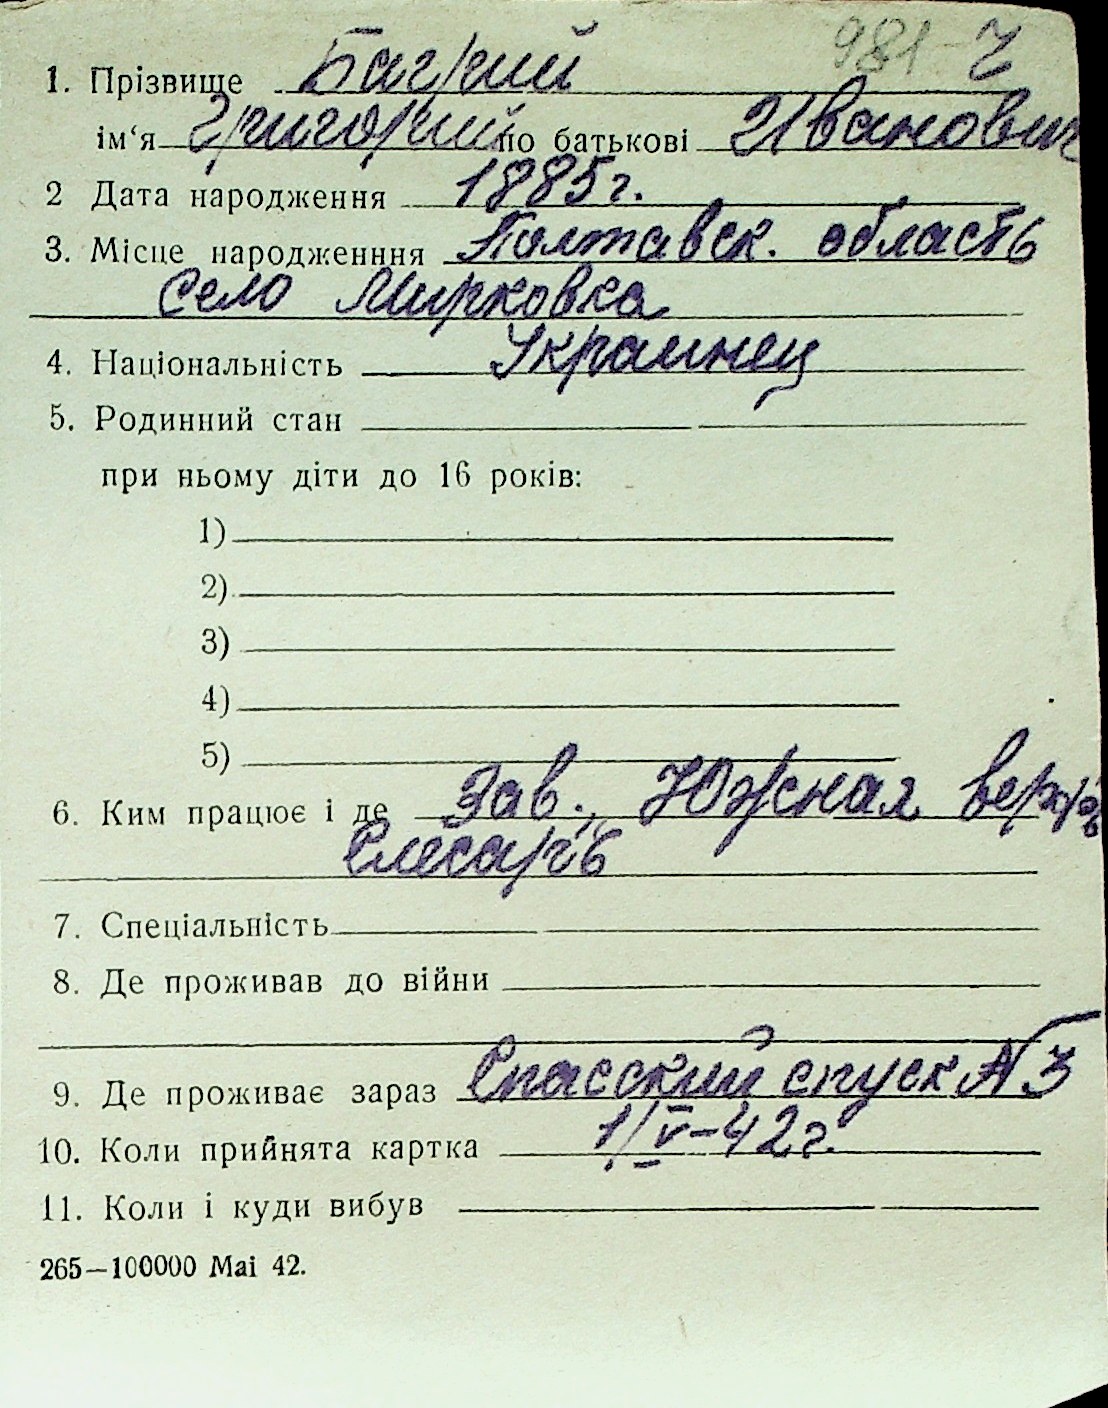 981 - 7
1. Прізвище Багрий
ім‘я Григорий по батькові Иванович
2 Дата народження 1885 г.
3. Місце народженння Полтавск. область
село Мирковка
4. Національність Украинец
5. Родинний стан
при ньому діти до 16 років:
1)
2)
3)
4)
5)
6. Ким працює і де Зав. Южная верфь
Слесарь
7. Спеціальність
8. Де проживав до війни
9. Де проживає зараз Спасский спуск № 3
10. Коли прийнята картка 1/V-42 г.
11. Коли і куди вибув
265—100000 Mai 42.